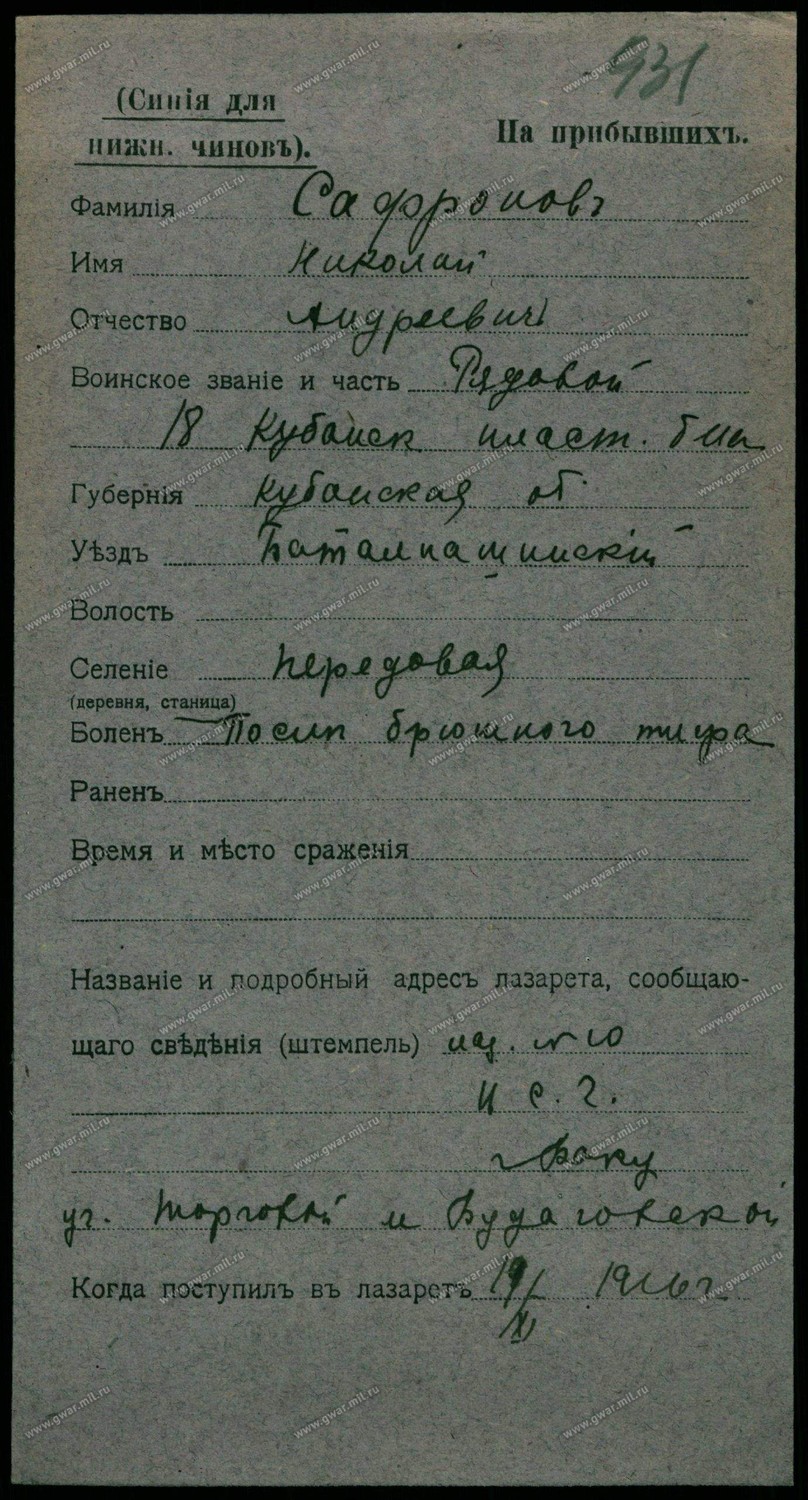 931
(Синія для
нижн. чиновъ).
На прибывшихъ.
Фамилія Сафроновъ
Имя Николай
Отчество Андреевичъ
Воинское званіе и часть Рядовой
18 Кубанск пласт. б-на
Губернія Кубанская об
Уѣздъ Баталпашинскій
Волость
Селеніе Передовая
(деревня, станица)
Боленъ Послѣ брюшного тифа
Раненъ
Время и мѣсто сраженія
Названіе и подробный адресъ лазарета, сообщаю-
щаго свѣдѣнія (штемпель) лаз. № 10
С. Г.
г Баку
уг. Торговой и Будаговской
Когда поступилъ въ лазаретъ 19/XI 1916 г
www.gwar.mil.ru